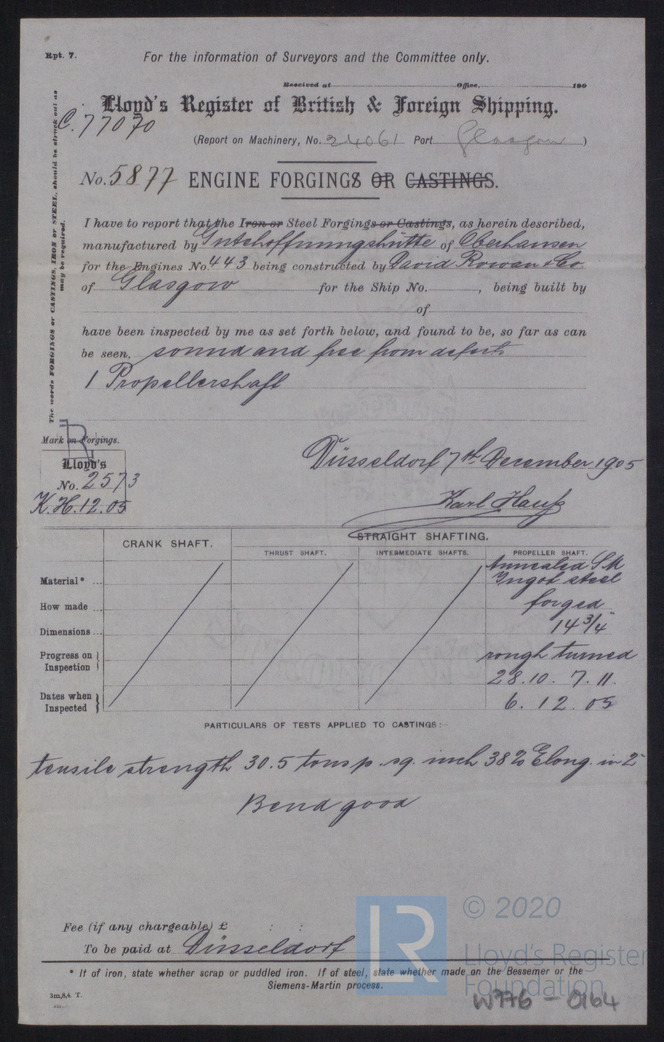 Rpt. 7.
For the information of Surveyors and the Committee only.
Received at Office, 190
Lloyd's Register of British & Foreign Shipping.
C. 77070
(Report on Machinery, No. 24061 Port Glasgow )
No. 5877 ENGINE FORGINGS OR CASTINGS.
The words FORGINGS or CASTINGS, IRON or STEEL, should be struck out as
may be required.
I have to report that the Iron or Steel Forgings or Castings, as herein described,
manufactured by Gutehoffnungshütte of Oberhausen
for the Engines No. 443 being constructed by David Rowan & Co
of Glasgow for the Ship No. , being built by
of
have been inspected by me as set forth below, and found to be, so far as can
be seen, sound and free from defects
1 Propellershaft
Mark on Forgings.
LR
Lloyd's
No. 2573
K.H. 12.05
Düsseldorf 7th December 1905
Karl Hauß
CRANK SHAFT. STRAIGHT SHAFTING.
THRUST SHAFT. INTERMEDIATE SHAFTS. PROPELLER SHAFT.
Material* ... annealed S.M.
Ingot steel
How made ... forged
Dimensions ... 14 3/4"
Progress on
Inspection rough turned
28.10. 7.11.
Dates when
Inspected 6. 12. 05
PARTICULARS OF TESTS APPLIED TO CASTINGS:-
tensile strength 30.5 tons p. sq. inch 38% Elong. in 2"
Bend good
Fee (if any chargeable) £ : :
To be paid at Düsseldorf
* If of iron, state whether scrap or puddled iron. If of steel, state whether made on the Bessemer or the
Siemens-Martin process.
LR
© 2020
Lloyd's Register
Foundation
W776 - 0164